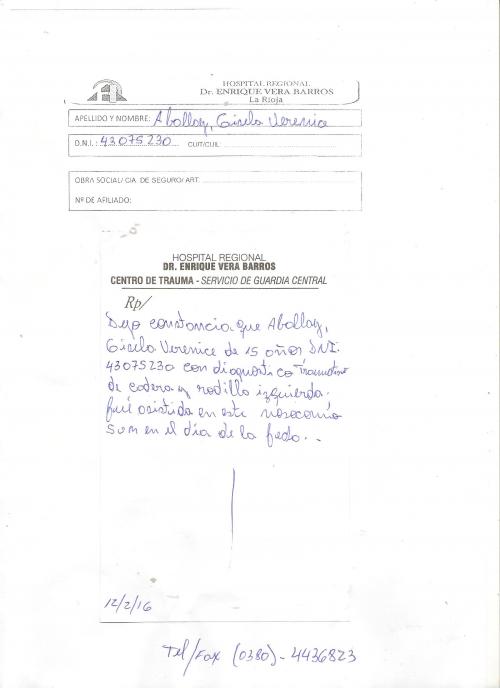 HOSPITAL REGIONAL
Dr. ENRIQUE VERA BARROS
La Rioja
APELLIDO Y NOMBRE: Aballay, Gisela Verenice
D.N.I.: 43075230 CUIT/CUIL:
OBRA SOCIAL/ CIA. DE SEGURO/ ART:
Nº DE AFILIADO:
HOSPITAL REGIONAL
DR. ENRIQUE VERA BARROS
CENTRO DE TRAUMA - SERVICIO DE GUARDIA CENTRAL
Rp/
Dejo constancia que Aballay,
Gisela Verenice de 15 años DNI:
43075230 con diagnostico traumatismo
de cadera y rodilla izquierda.
fué asistida en este nosocomio
en el día de la fecha.
12/2/16
Tel/Fax (0380) - 4436823